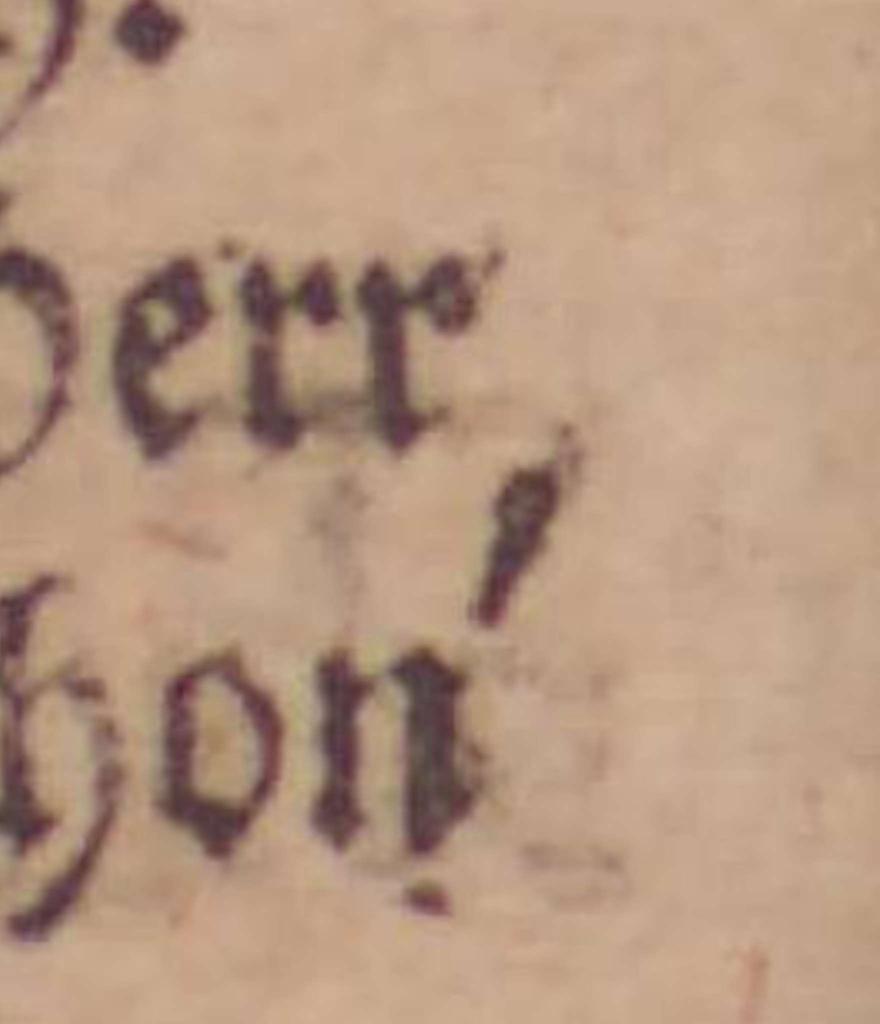 .
Herr
hon!